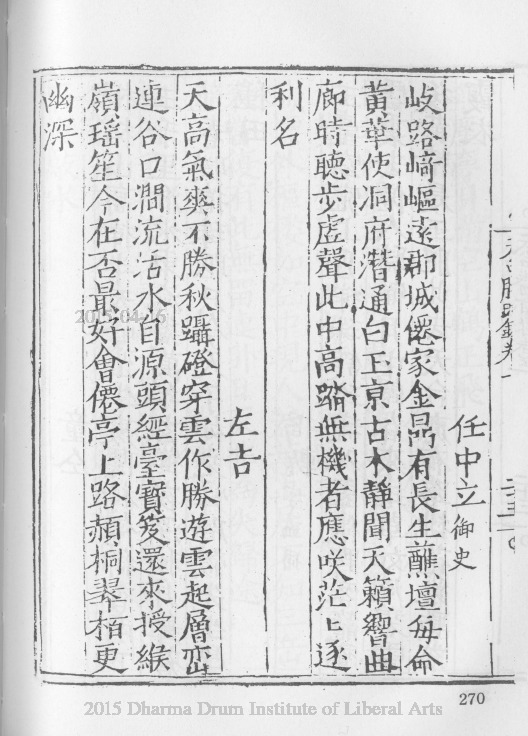 任中立御史
岐路﨑嶇遠郡城僊家金鼎有長生醮壇每命
黄華使洞府潛通白玉京古木靜聞天籟響曲
廊時聴步虛聲此中高踏無機者應咲茫〻逐
利名
左吉
天高氣爽不勝秋躡磴穿雲作勝遊雲起層巒
連谷口澗流活水自源頭經臺寶笈還來授緱
嶺瑶笙今在否最好會僊亭上路頳桐翠栢更
幽深
270
2015-04-16
2015 Dharma Drum Institute of Liberal Arts